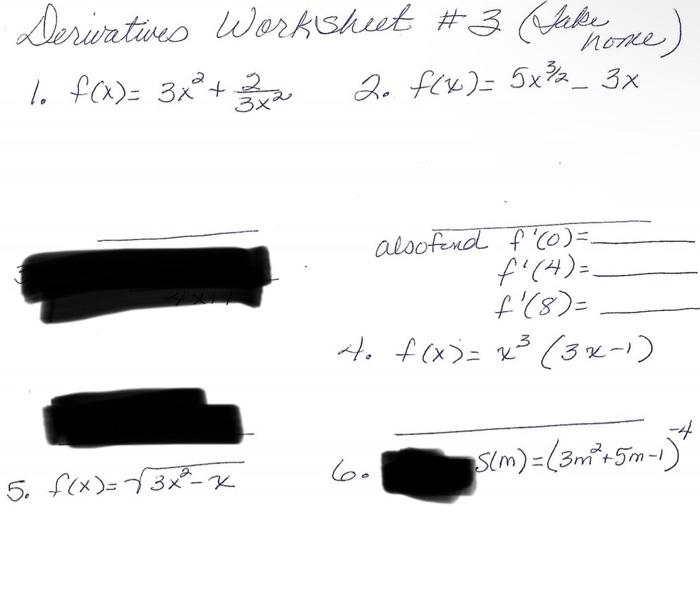 Derivatives Worksheet # 3 (Take home)
1. f(x) = 3x² + 2/3x²
2. f(x) = 5x^3/2 - 3x
also find f'(0) =
f'(4) =
f'(8) =
4. f(x) = x³ (3x-1)
5. f(x) = √3x² - x
6. S(m) = (3m² + 5m - 1)^-4